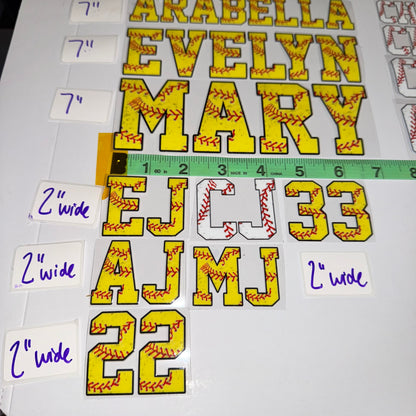 7" ARABELLA
7" EVELYN
7" MARY
1 60 in 2 3 MADE IN 4 CHINA 5 6 7 8
2" wide EJ CJ 33
2" wide AJ MJ 2" wide
2" wide 22